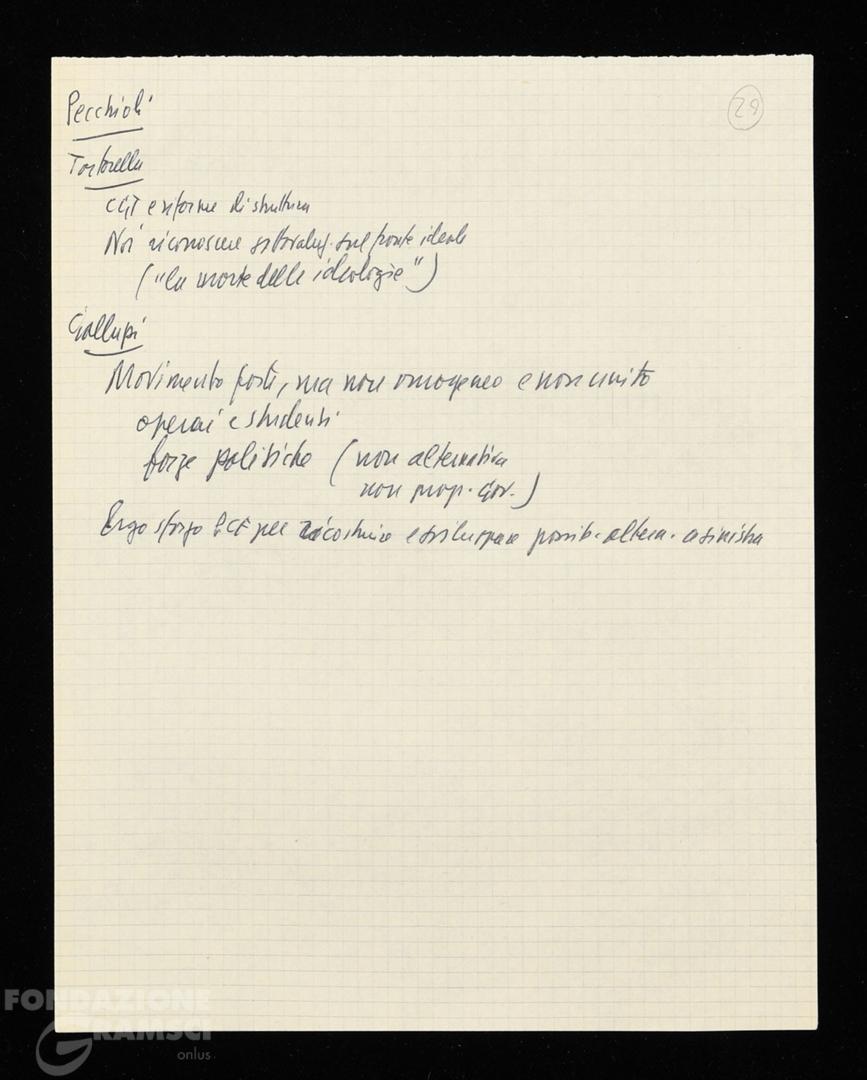 29
Pecchioli
Tortorella
CGT e riforme di struttura
Noi riconoscere sottovalut. sul fronte ideale
("la morte delle ideologie")
Galluzzi
Movimento forte, ma non omogeneo e non unito
operai e studenti
forze politiche (non alternativa
non prop. gov.)
Ergo sforzo PCF per ricostruire e sviluppare possib. altern. a sinistra
FONDAZIONE
GRAMSCI
onlus